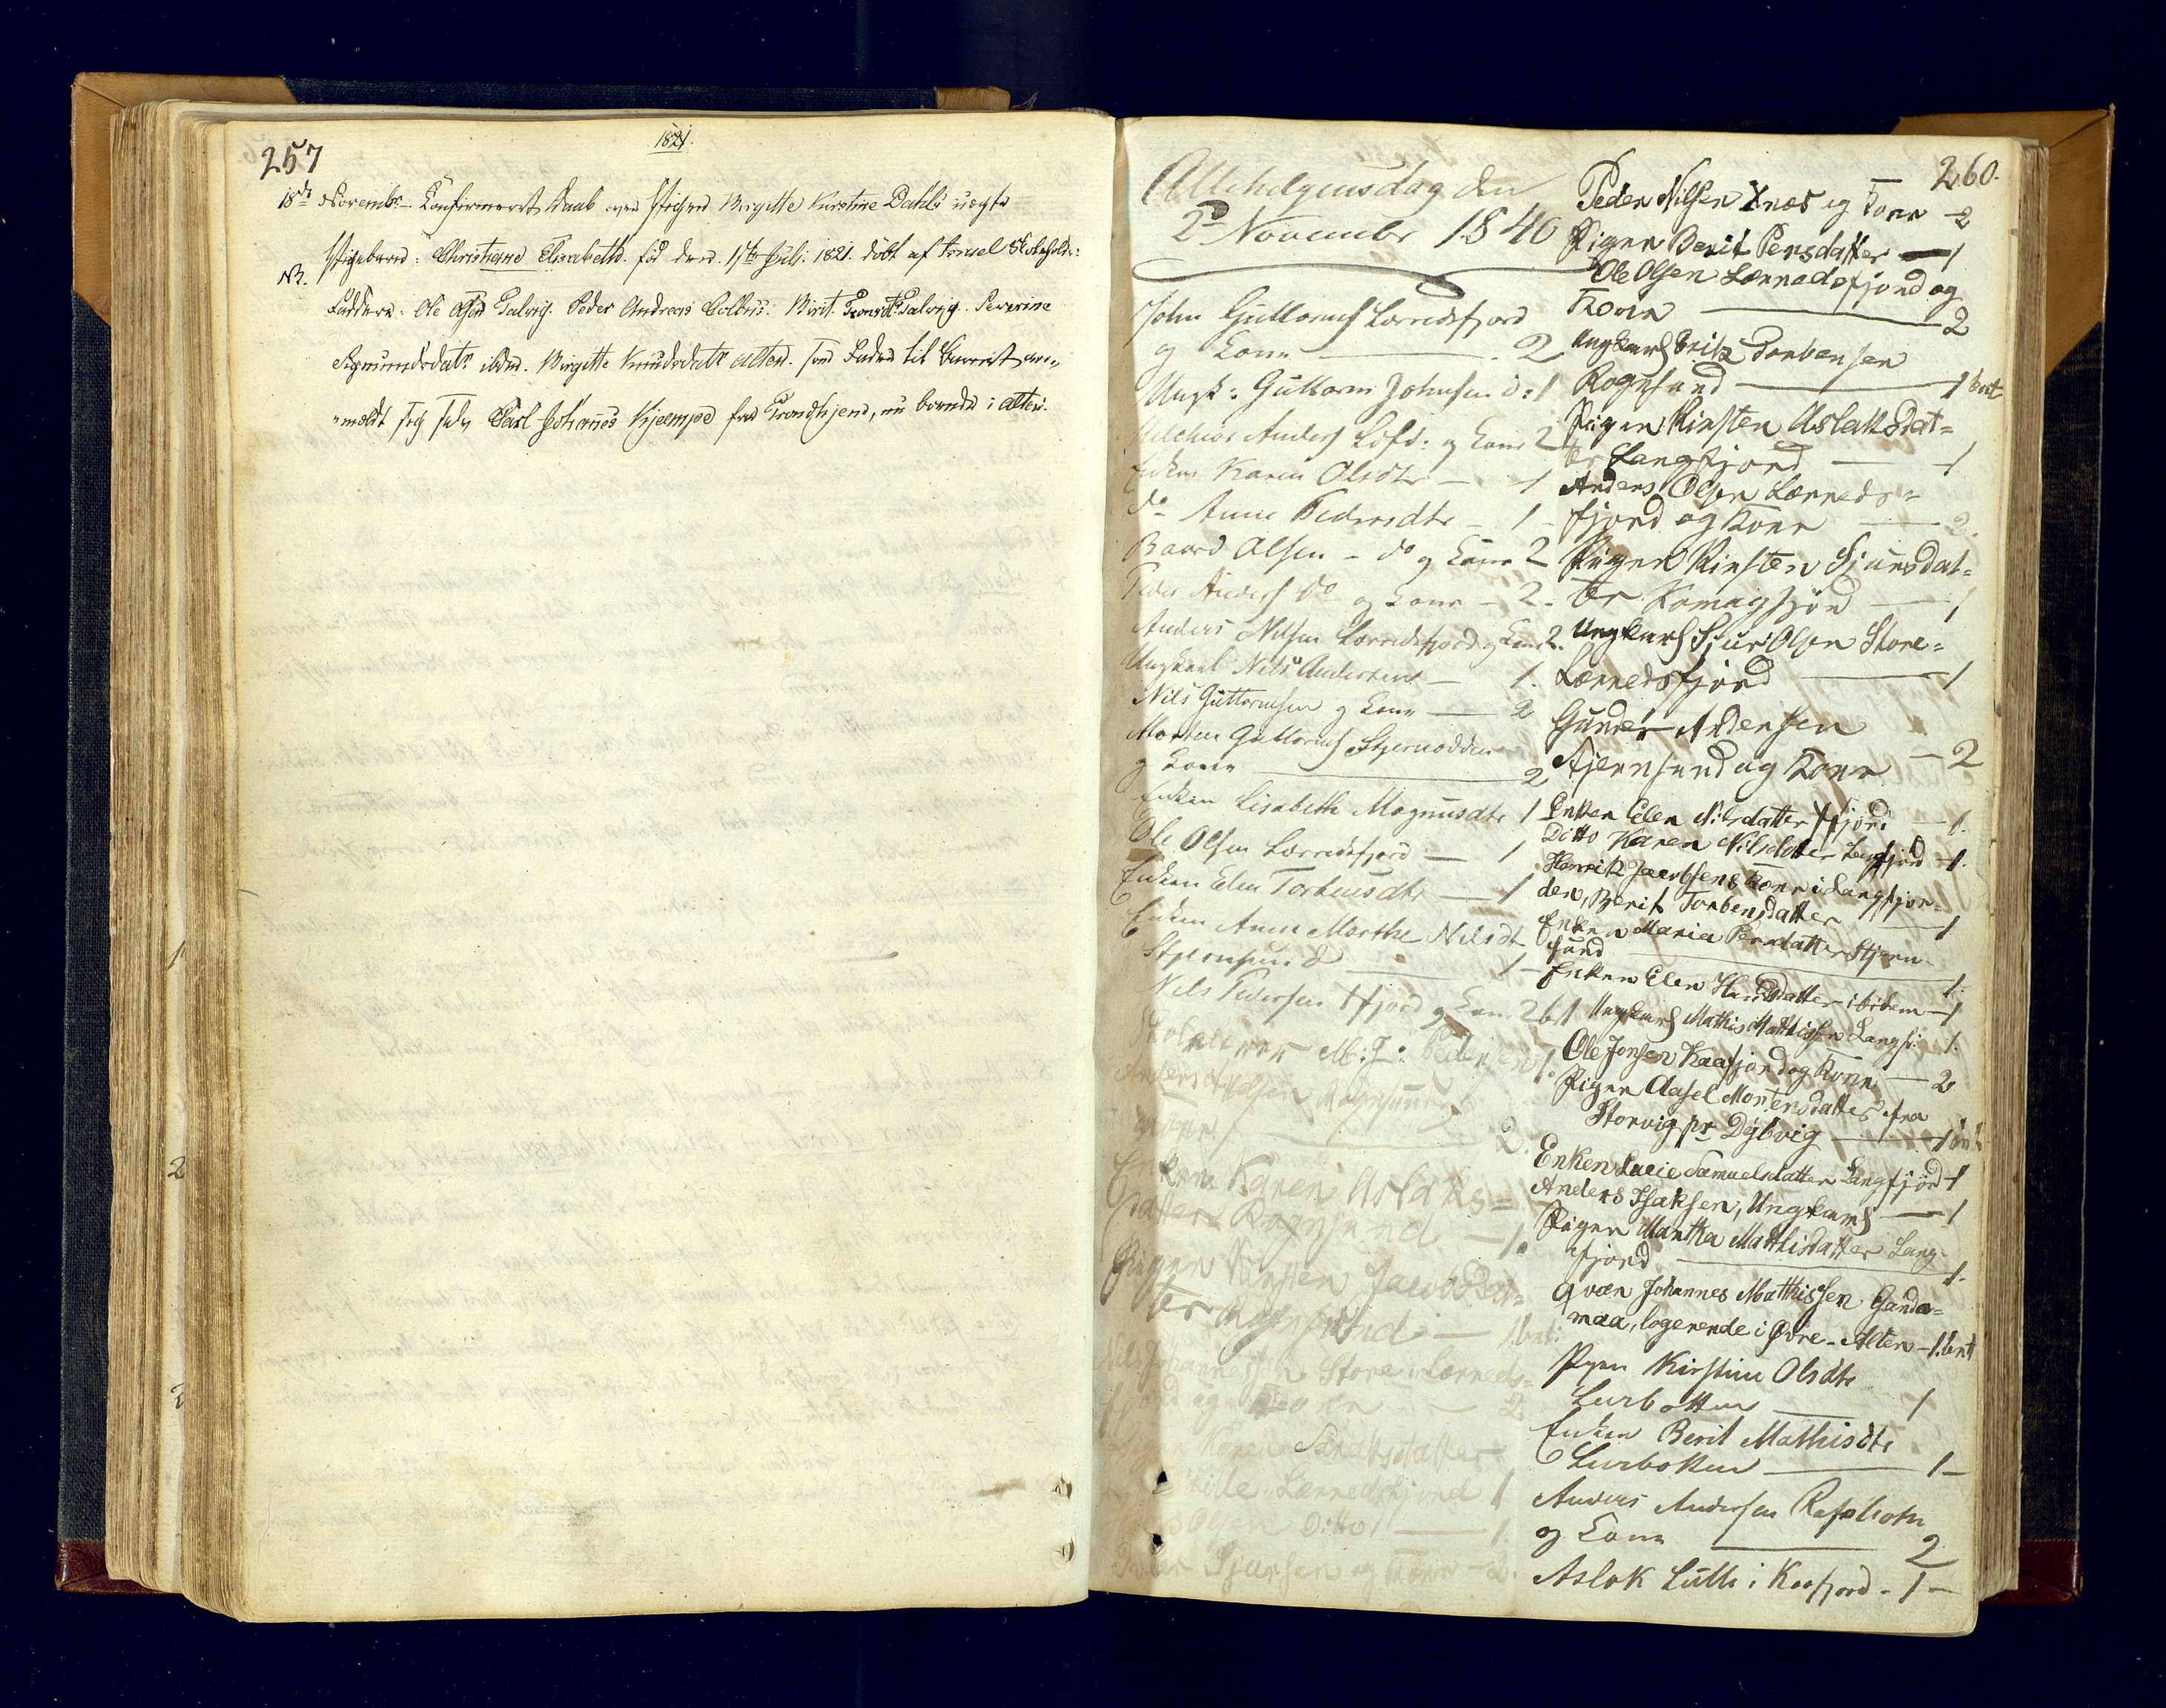 257
1821.
18de Novembr. Confirmerit Daab over Pigen Birgitte Kirstine Dahls uægte
Pigebarn: Christiane Elisabeth. fød den 1ste Juli 1821. døbt af
NB.
Faddere: Ole Olsen Talvig. Peder Andreas Berit Talvig. Severine
Sigmundsdatr ibdm. Birgitte Knudsdatr Alten. som Fader til Barnet an-
meldt sig selv Carl Johannes Kjempe fra Trondhjem, nu boende i Alten.
260.
Allehelgensdag den
2den November 1840
John Guttorms Lerredsfjord
og Kone 2
Ungk: Guttorm Johnsen do 1
Melchior Anders Lofd: og Kone 2
Enken Karen Olsdtr 1
do Anne Pedersdtr 1
Baard Olsen do og Kone 2
Peder Anders do og Kone 2
Anders Nilsen Lerredsfjord og Kone 2.
Ungkarl Nils Andersen 1.
Nils Guttormsen og Kone 2
Morten Guttorms Stjernodden
og Kone 2
Enken Lisabeth Magnusdtr 1
Ole Olsen Lerredsfjord 1
Enken Elen Torbensdtr 1
Enken Anne Marthe Nilsdt
Stjernsund 1
Nils Pedersen fjord og Kone 2
M: J: Pedersen 1.
Anders Nilsen Rognsund
Kone 2.
Enken Karen Aslaks=
datter Rognsund 1.
Pigen Kirsten Jacobsdat=
ter Rognsund 1 bnt:
Nils Johannessen Store Lærreds=
fjord og Kone 2
Karen datter
Lille Lærredsfjord 1
Olsen Ditto 1.
Peder Sjursen og Kone 2.
Peder Nilsen Xnæs og Kone 2
Pigen Berit Persdatter 1
Ole Olsen Lærredsfjord og
Kone 2
Ungkarl Erik Torbensen
Rognsund 1 bnt
Pigen Kirsten Aslaksdat=
ter Langfjord 1
Anders Olsen Lærreds=
fjord og Kone 2.
Pigen Kirsten Sjursdat=
ter Komagfjord 1
Ungkarl Sjur Olsen Store=
Lærredsfjord 1
Gunder Andersen
Stjernsund og Kone 2
Enken Elen Nilsdatter fjord 1.
Ditto Karen Nilsdatter Langfjord 1.
Henrik Jacobsens Kone i Langfjor=
den, Berit Torbensdatter 1
Enken Maria Persdatter Stjern=
sund 1.
Enken Elen Hansdatter ibidem 1
Ungkarl Mathis Mathissen Langfj: 1.
Ole Jonsen Kaafjord og Kone 2
Pigen Aasel Mortensdatter fra
Storvig pr Dybvig 1 bnt
Enken Lucie Samuelsdatter Langfjord 1
Anders Isaksen, Ungkarl 1
Pigen Martha Mathisdatter Lang=
fjord 1.
Qvæn Johannes Mathissen Ganda=
maa, logerende i Øvre-Alten 1. bnt
Pigen Kirstine Olsdtr
Lerbotten 1
Enken Berit Mathisdtr
Lerbotten 1
Anders Andersen Rafsbotn
og Kone 2
Aslak Lulle i Kaafjord 1